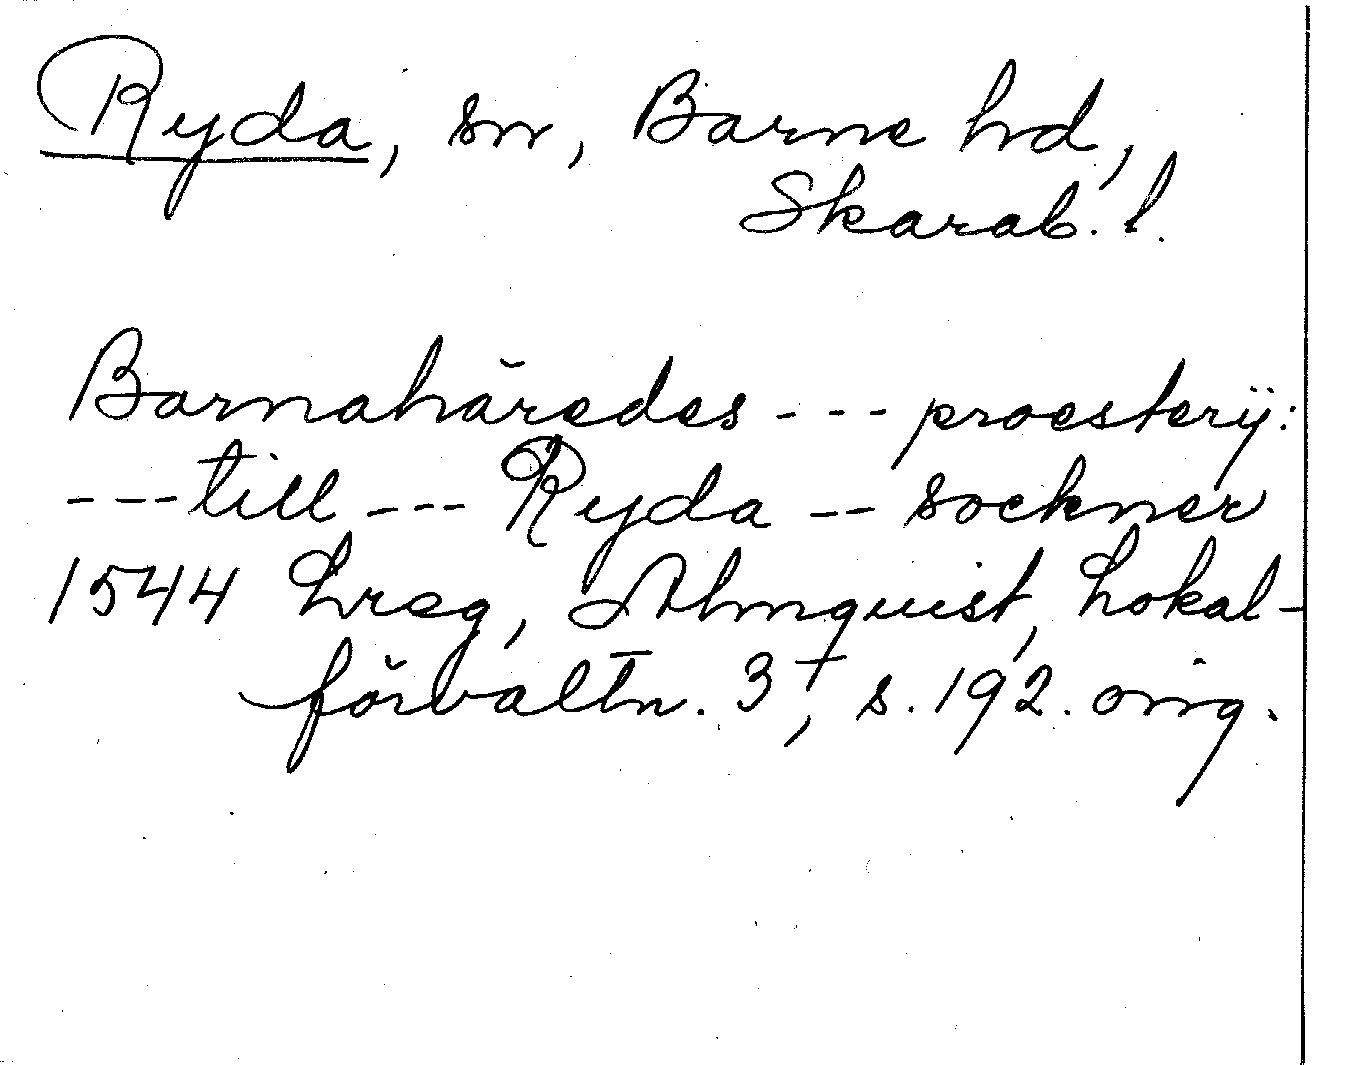 Ryda, sn, Barne hd,
Skarab. l.
Barnahäredes --- proesterÿ:
--- till --- Ryda -- sockner
1544 Lreg, Almquist, Lokal-
förvaltn. 3+, s. 192. orig.